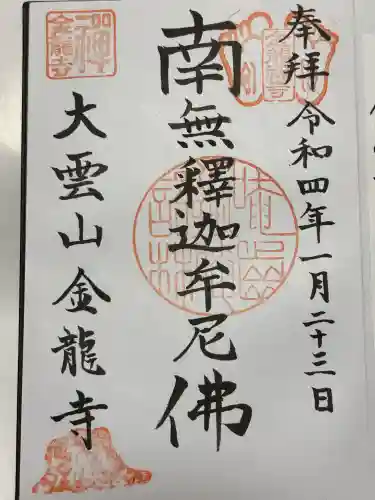 奉拝
令和四年一月二十三日
南無釋迦牟尼佛
大雲山金龍寺
禅
金龍寺